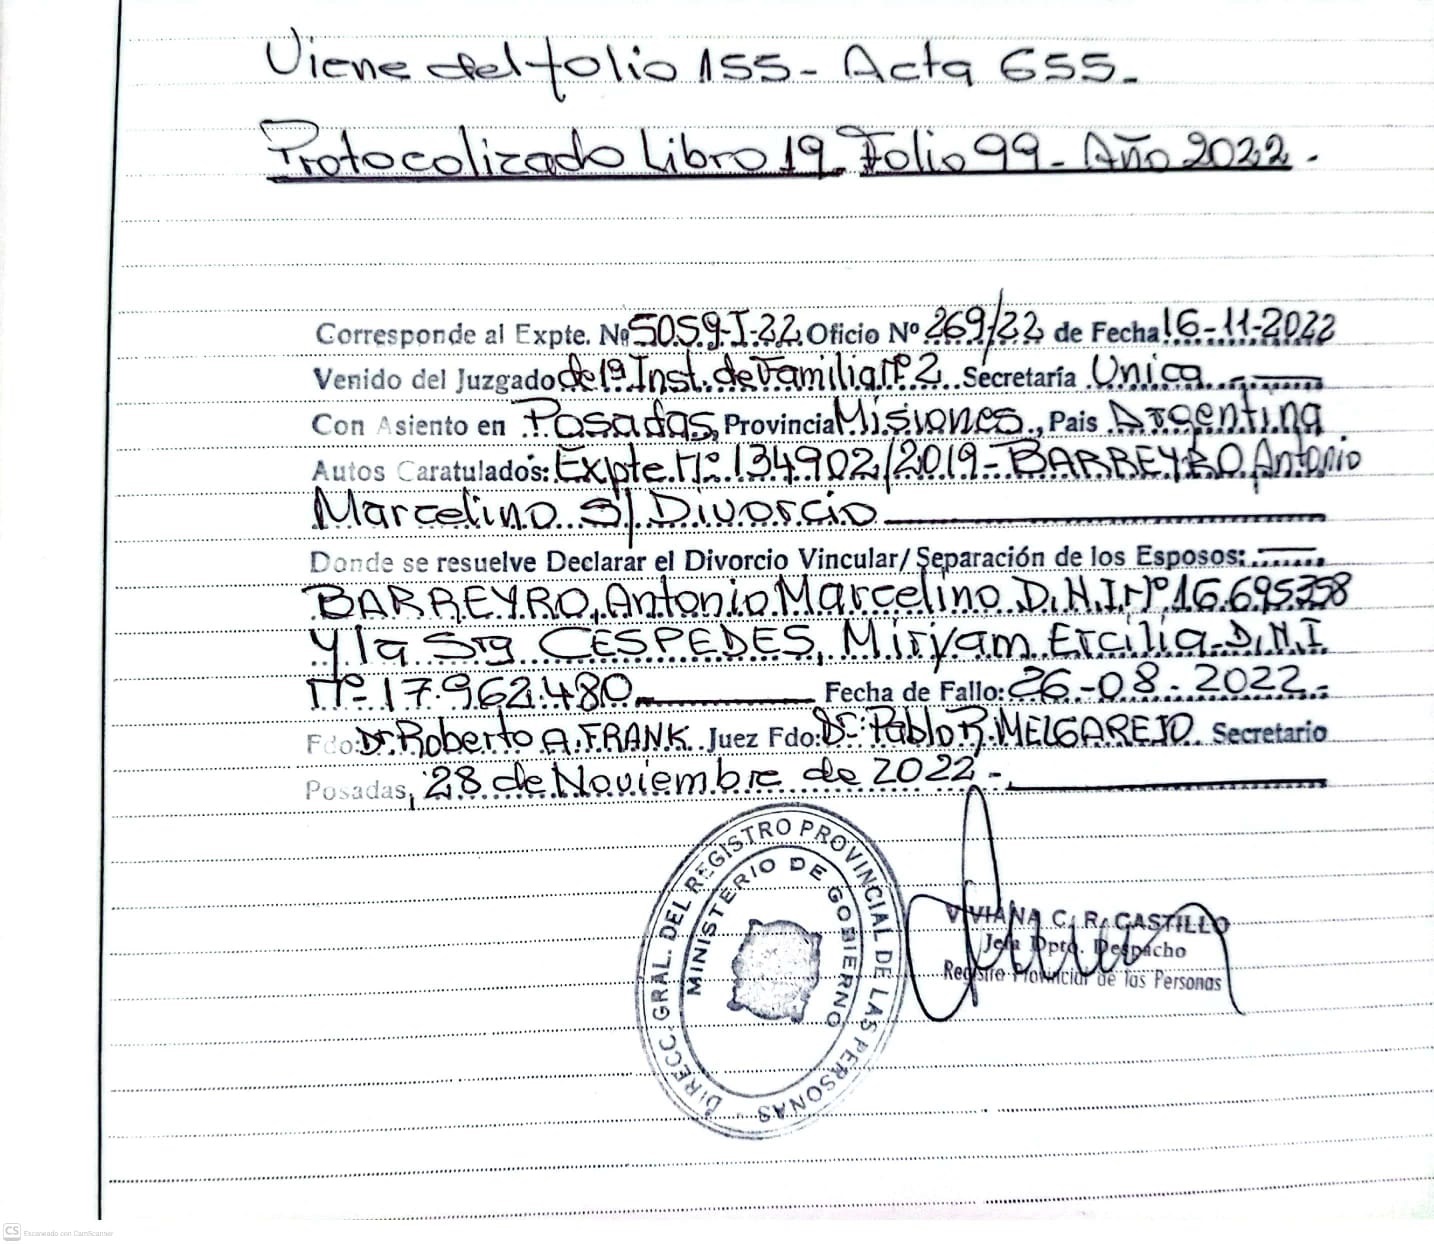 Viene del folio 155- Acta 655.-
Protocolizado Libro 19. Folio 99- Año 2022.-
Corresponde al Expte. Nº 5059-I-22 Oficio Nº 269/22 de Fecha 16-11-2022
Venido del Juzgado de 1ª Inst. de Familia Nº 2 Secretaría Unica
Con Asiento en Posadas, Provincia Misiones, Pais Argentina
Autos Caratulados: Expte. Nº 134902/2019- BARREYRO Antonio
Marcelino S/ Divorcio
Donde se resuelve Declarar el Divorcio Vincular/ Separación de los Esposos:
BARREYRO, Antonio Marcelino D.N.I Nº 16.695.358
y la Sra CESPEDES, Miryam Ercilia- D.N.I
Nº 17.962.480 Fecha de Fallo: 26-08-2022.-
Fdo: Dr. Roberto A. FRANK Juez Fdo: Dr. Pablo R. MELGAREJO Secretario
Posadas, 28 de Noviembre de 2022-
DIRECC. GRAL. DEL REGISTRO PROVINCIAL DE LAS PERSONAS -
MINISTERIO DE GOBIERNO
VIVIANA C. R. CASTILLO
Jefa Dpto. Despacho
Registro Provincial de las Personas
CS Escaneado con CamScanner